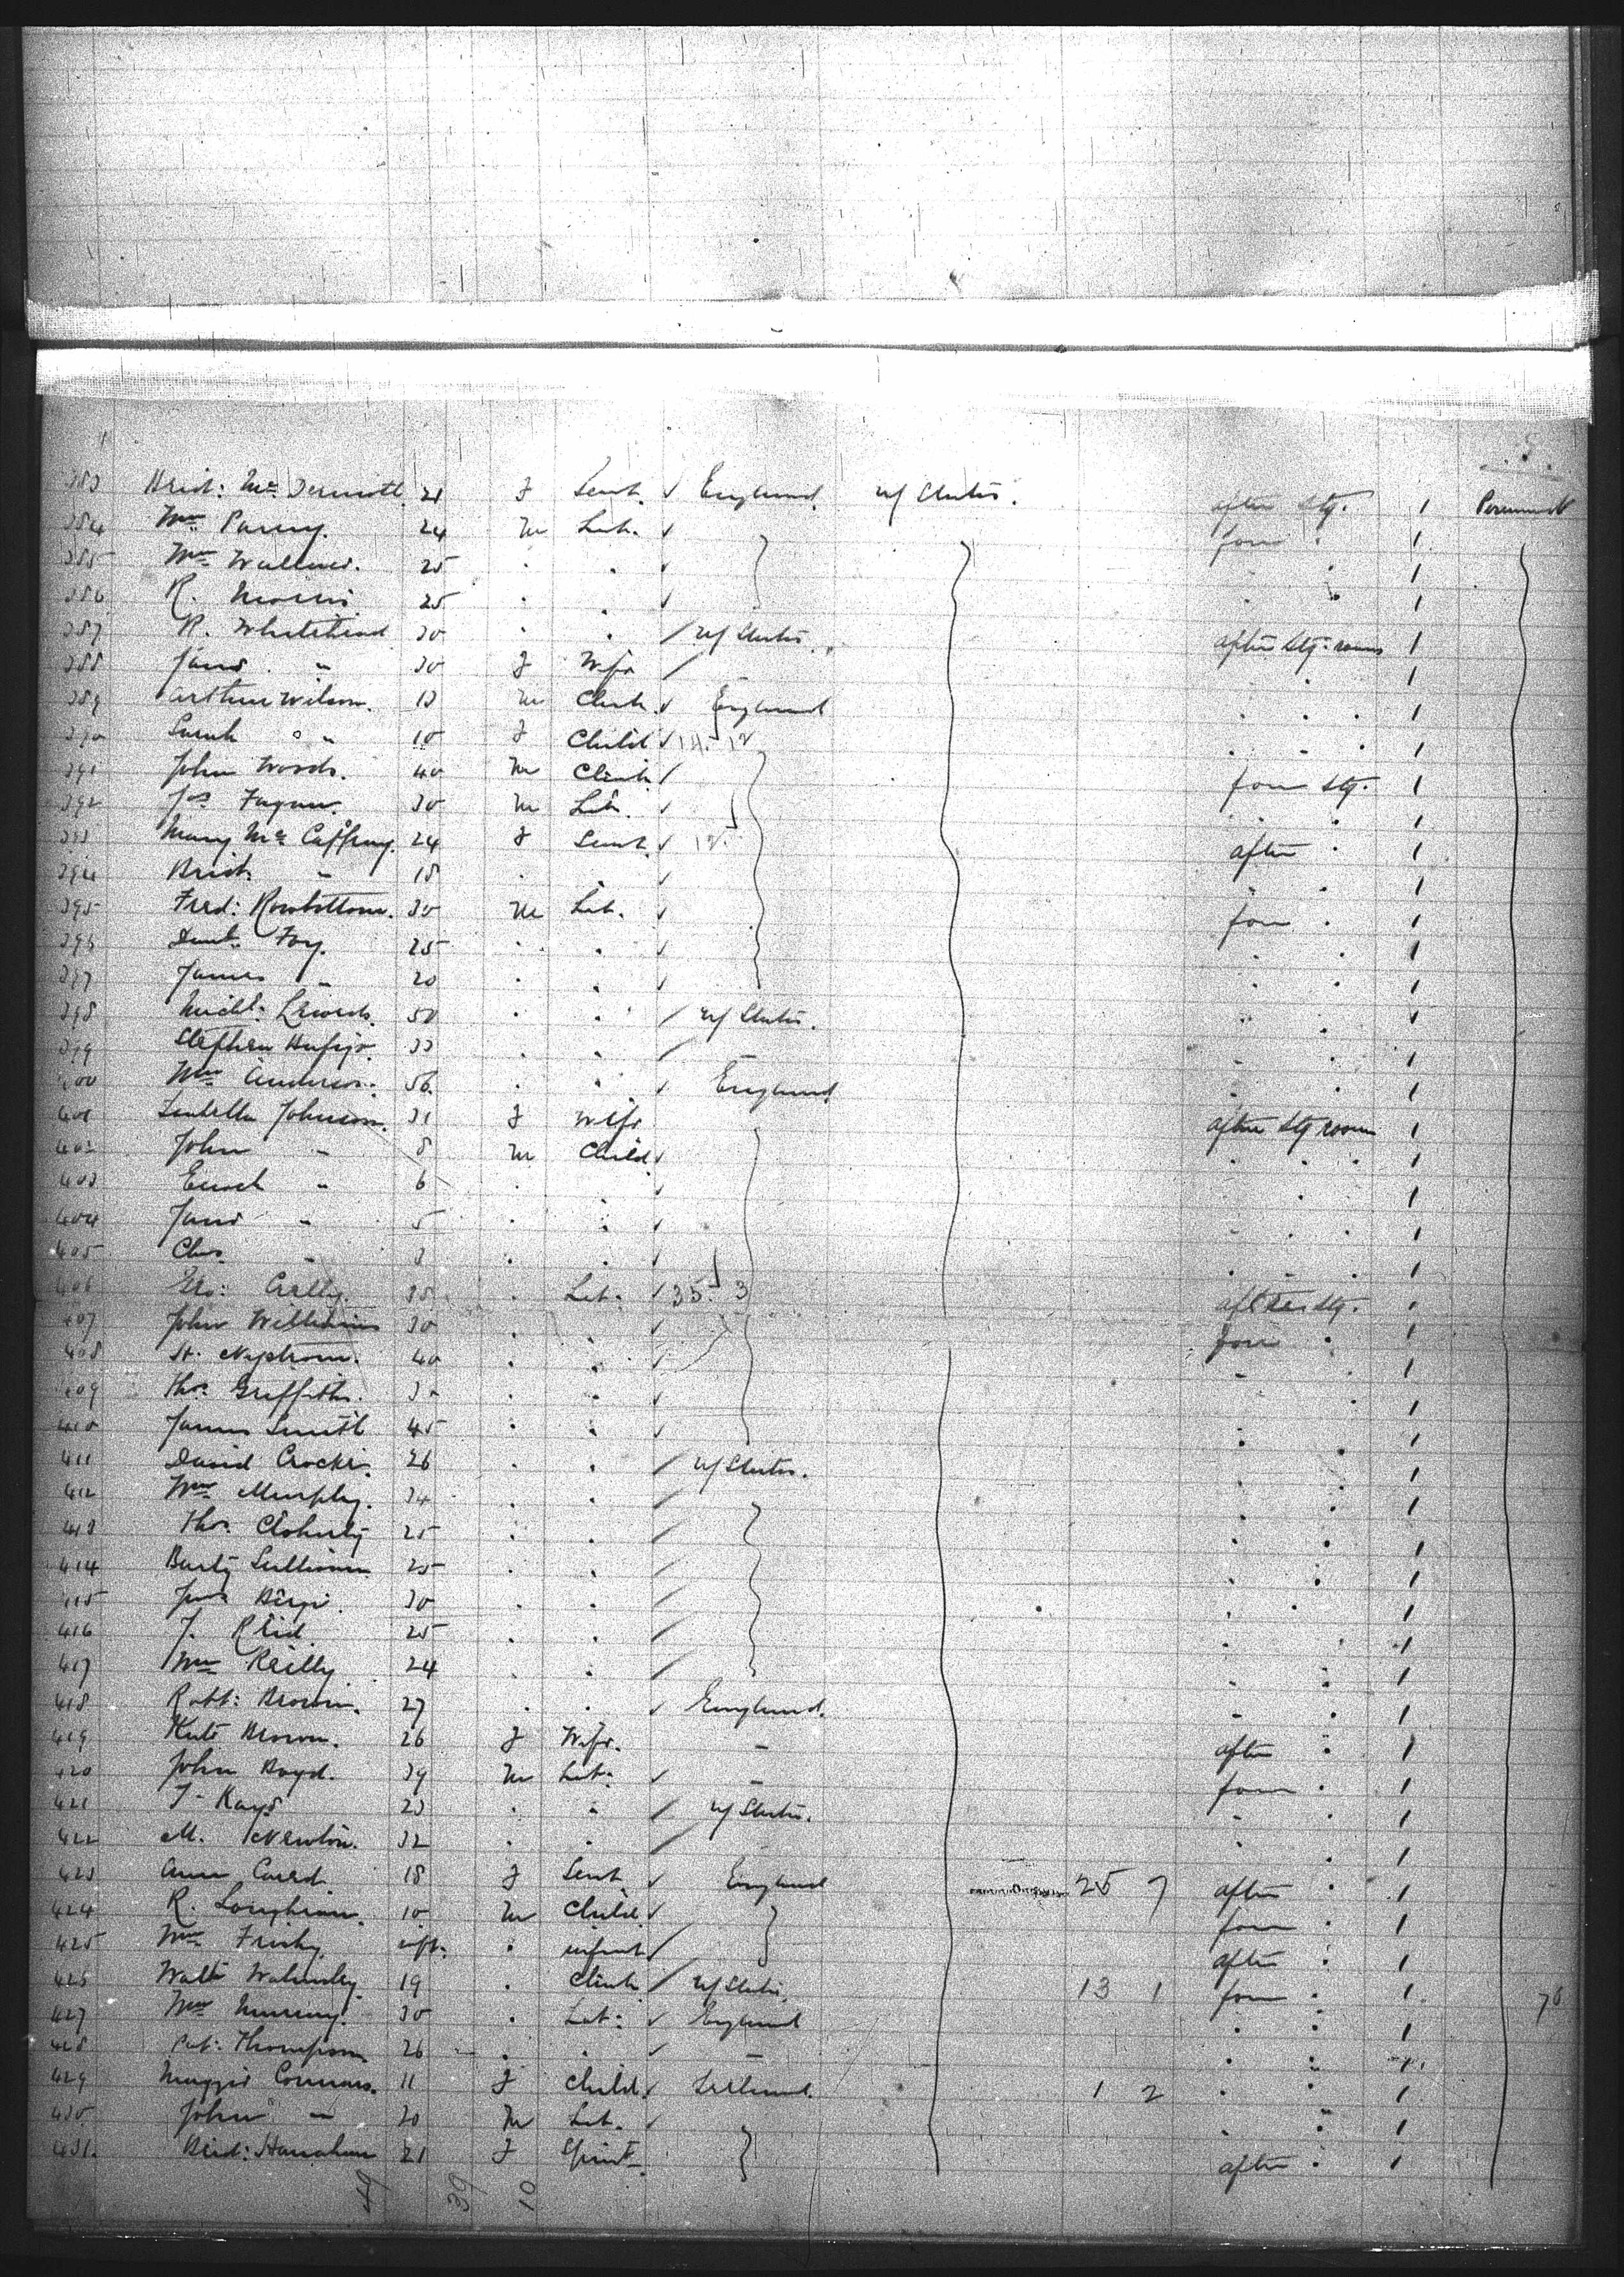 383 Brid: McDermott 21 F Servt. ✓ England. U/States. after Stg. 1 Permanent
384 Wm Parry. 24 M Lab. ✓ fore " 1
385 Wm 25 " " ✓ " " 1
386 R. Morris 25 " " ✓ " " 1
387 R. Whitehead 30 " " / U/States. after Stg. room 1
388 Jane " 30 F Wife / " " 1
389 Arthur Wilson. M Clerk ✓ England " " " 1
390 Sarah " " 10 F Child ✓ " " " 1
391 John Woods. 40 M Clerk / fore Stg. 1
392 Jas Fagan. 30 M Lab. ✓ " " 1
393 Mary McCaffray. 24 F Servt. ✓ after " 1
394 Brid. " 18 " " ✓ " " 1
395 Fred: Rowbottom. 30 M Lab. ✓ fore " 1
396 Danl. Foy. 25 " " ✓ " " 1
397 James " 20 " " ✓ " " 1
398 Michl: 50 " " / U/States. " " 1
399 Stephen 33 " " / " " 1
400 Wm Anderson. 56 " " ✓ England " " 1
401 Isabella Johnson. 31 F Wife after Stg room 1
402 John " 8 M Child ✓ " " " 1
403 Enoch " 6 " " ✓ " " 1
404 Jane " 5 " " ✓ " " " 1
405 Chas " 3 " " ✓ " " " 1
406 Geo: 35 " Lab: ✓ 35. 3 after Stg. 1
407 John Williams 30 " " ✓ fore " 1
408 A. Nystrom. 40 " " ✓ " 1
409 Thos. Griffiths. 30 " " ✓ " 1
410 James Smith 45 " " ✓ " " 1
411 David Crocker. 26 " " / U/States. " " 1
412 Wm Murphy. 34 " " / " " 1
413 Thos. Cloherty 25 " " / " " 1
414 Barty Sullivan 25 " " / " " 1
415 30 " " / " " 1
416 J. Reid 25 " " / " 1
417 Wm Reilly 24 " " / " " 1
418 Robt: Brown. 27 " " ✓ England. " " 1
419 Kate Brown. 26 F Wife. " after " 1
420 John Boyd. 39 M Lab: ✓ " fore " 1
421 T. Kays 23 " " / U/States. " 1
422 M. Newton. 32 " " / " " 1
423 Ann 18 F Servt. ✓ England 25 7 after " 1
424 R. Loughran. 10 M Child ✓ fore " 1
425 Wm inft. " infant / after " 1
426 Walt Walmsley 19 " Clerk / U/States. 13 1 fore " 1
427 Wm Murray. 30 " Lab: ✓ England " " 1
428 Pat: Thompson 26 " " ✓ " " " 1
429 Maggie Connors. 11 F Child ✓ Ireland. 1 2 " " 1
430 John " 20 M Lab. ✓ " " 1
431. Brid: Hanrahan 21 F Spinst. after " 1
49 39 10